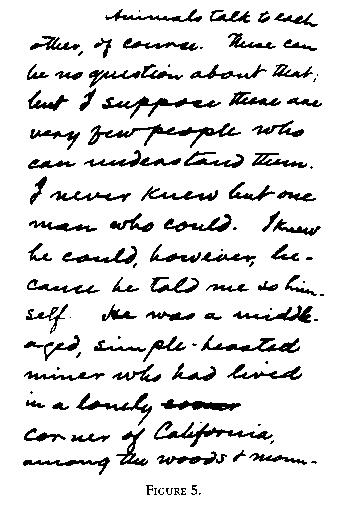 Animals talk to each
other, of course. There can
be no question about that;
but I suppose there are
very few people who
can understand them.
I never knew but one
man who could. I knew
he could, however, be-
cause he told me so him-
self. He was a middle-
aged, simple-hearted
miner who had lived
in a lonely corner
corner of California,
among the woods & moun-
FIGURE 5.